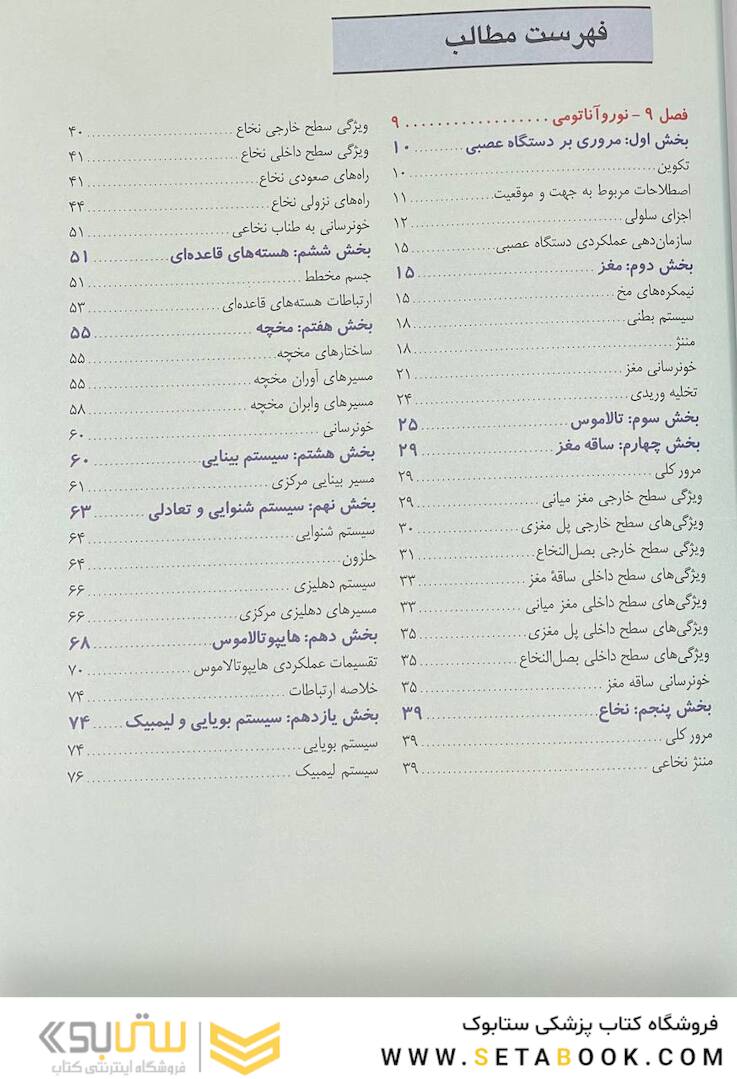 فهرست مطالب
فصل ۹ - نوروآناتومی .................. ۹
بخش اول: مروری بر دستگاه عصبی .......... ۱۰
تکوین .......... ۱۰
اصطلاحات مربوط به جهت و موقعیت .......... ۱۱
اجزای سلولی .......... ۱۲
سازمان‌دهی عملکردی دستگاه عصبی .......... ۱۵
بخش دوم: مغز .......... ۱۵
نیمکره‌های مخ .......... ۱۵
سیستم بطنی .......... ۱۸
مننژ .......... ۱۸
خونرسانی مغز .......... ۲۱
تخلیه وریدی .......... ۲۴
بخش سوم: تالاموس .......... ۲۵
بخش چهارم: ساقه مغز .......... ۲۹
مرور کلی .......... ۲۹
ویژگی سطح خارجی مغز میانی .......... ۲۹
ویژگی‌های سطح خارجی پل مغزی .......... ۳۰
ویژگی سطح خارجی بصل‌النخاع .......... ۳۱
ویژگی‌های سطح داخلی ساقهٔ مغز .......... ۳۳
ویژگی‌های سطح داخلی مغز میانی .......... ۳۳
ویژگی‌های سطح داخلی پل مغزی .......... ۳۵
ویژگی‌های سطح داخلی بصل‌النخاع .......... ۳۵
خونرسانی ساقه مغز .......... ۳۵
بخش پنجم: نخاع .......... ۳۹
مرور کلی .......... ۳۹
مننژ نخاعی .......... ۳۹
ویژگی سطح خارجی نخاع .......... ۴۰
ویژگی سطح داخلی نخاع .......... ۴۱
راه‌های صعودی نخاع .......... ۴۱
راه‌های نزولی نخاع .......... ۴۴
خونرسانی به طناب نخاعی .......... ۵۱
بخش ششم: هسته‌های قاعده‌ای .......... ۵۱
جسم مخطط .......... ۵۱
ارتباطات هسته‌های قاعده‌ای .......... ۵۳
بخش هفتم: مخچه .......... ۵۵
ساختارهای مخچه .......... ۵۵
مسیرهای آوران مخچه .......... ۵۵
مسیرهای وابران مخچه .......... ۵۸
خونرسانی .......... ۶۰
بخش هشتم: سیستم بینایی .......... ۶۰
مسیر بینایی مرکزی .......... ۶۱
بخش نهم: سیستم شنوایی و تعادلی .......... ۶۳
سیستم شنوایی .......... ۶۴
حلزون .......... ۶۴
سیستم دهلیزی .......... ۶۶
مسیرهای دهلیزی مرکزی .......... ۶۶
بخش دهم: هایپوتالاموس .......... ۶۸
تقسیمات عملکردی هایپوتالاموس .......... ۷۰
خلاصه ارتباطات .......... ۷۴
بخش یازدهم: سیستم بویایی و لیمبیک .......... ۷۴
سیستم بویایی .......... ۷۴
سیستم لیمبیک .......... ۷۶
فروشگاه کتاب پزشکی ستابوک
WWW.SETABOOK.COM
ستابوک
فروشگاه اینترنتی کتاب